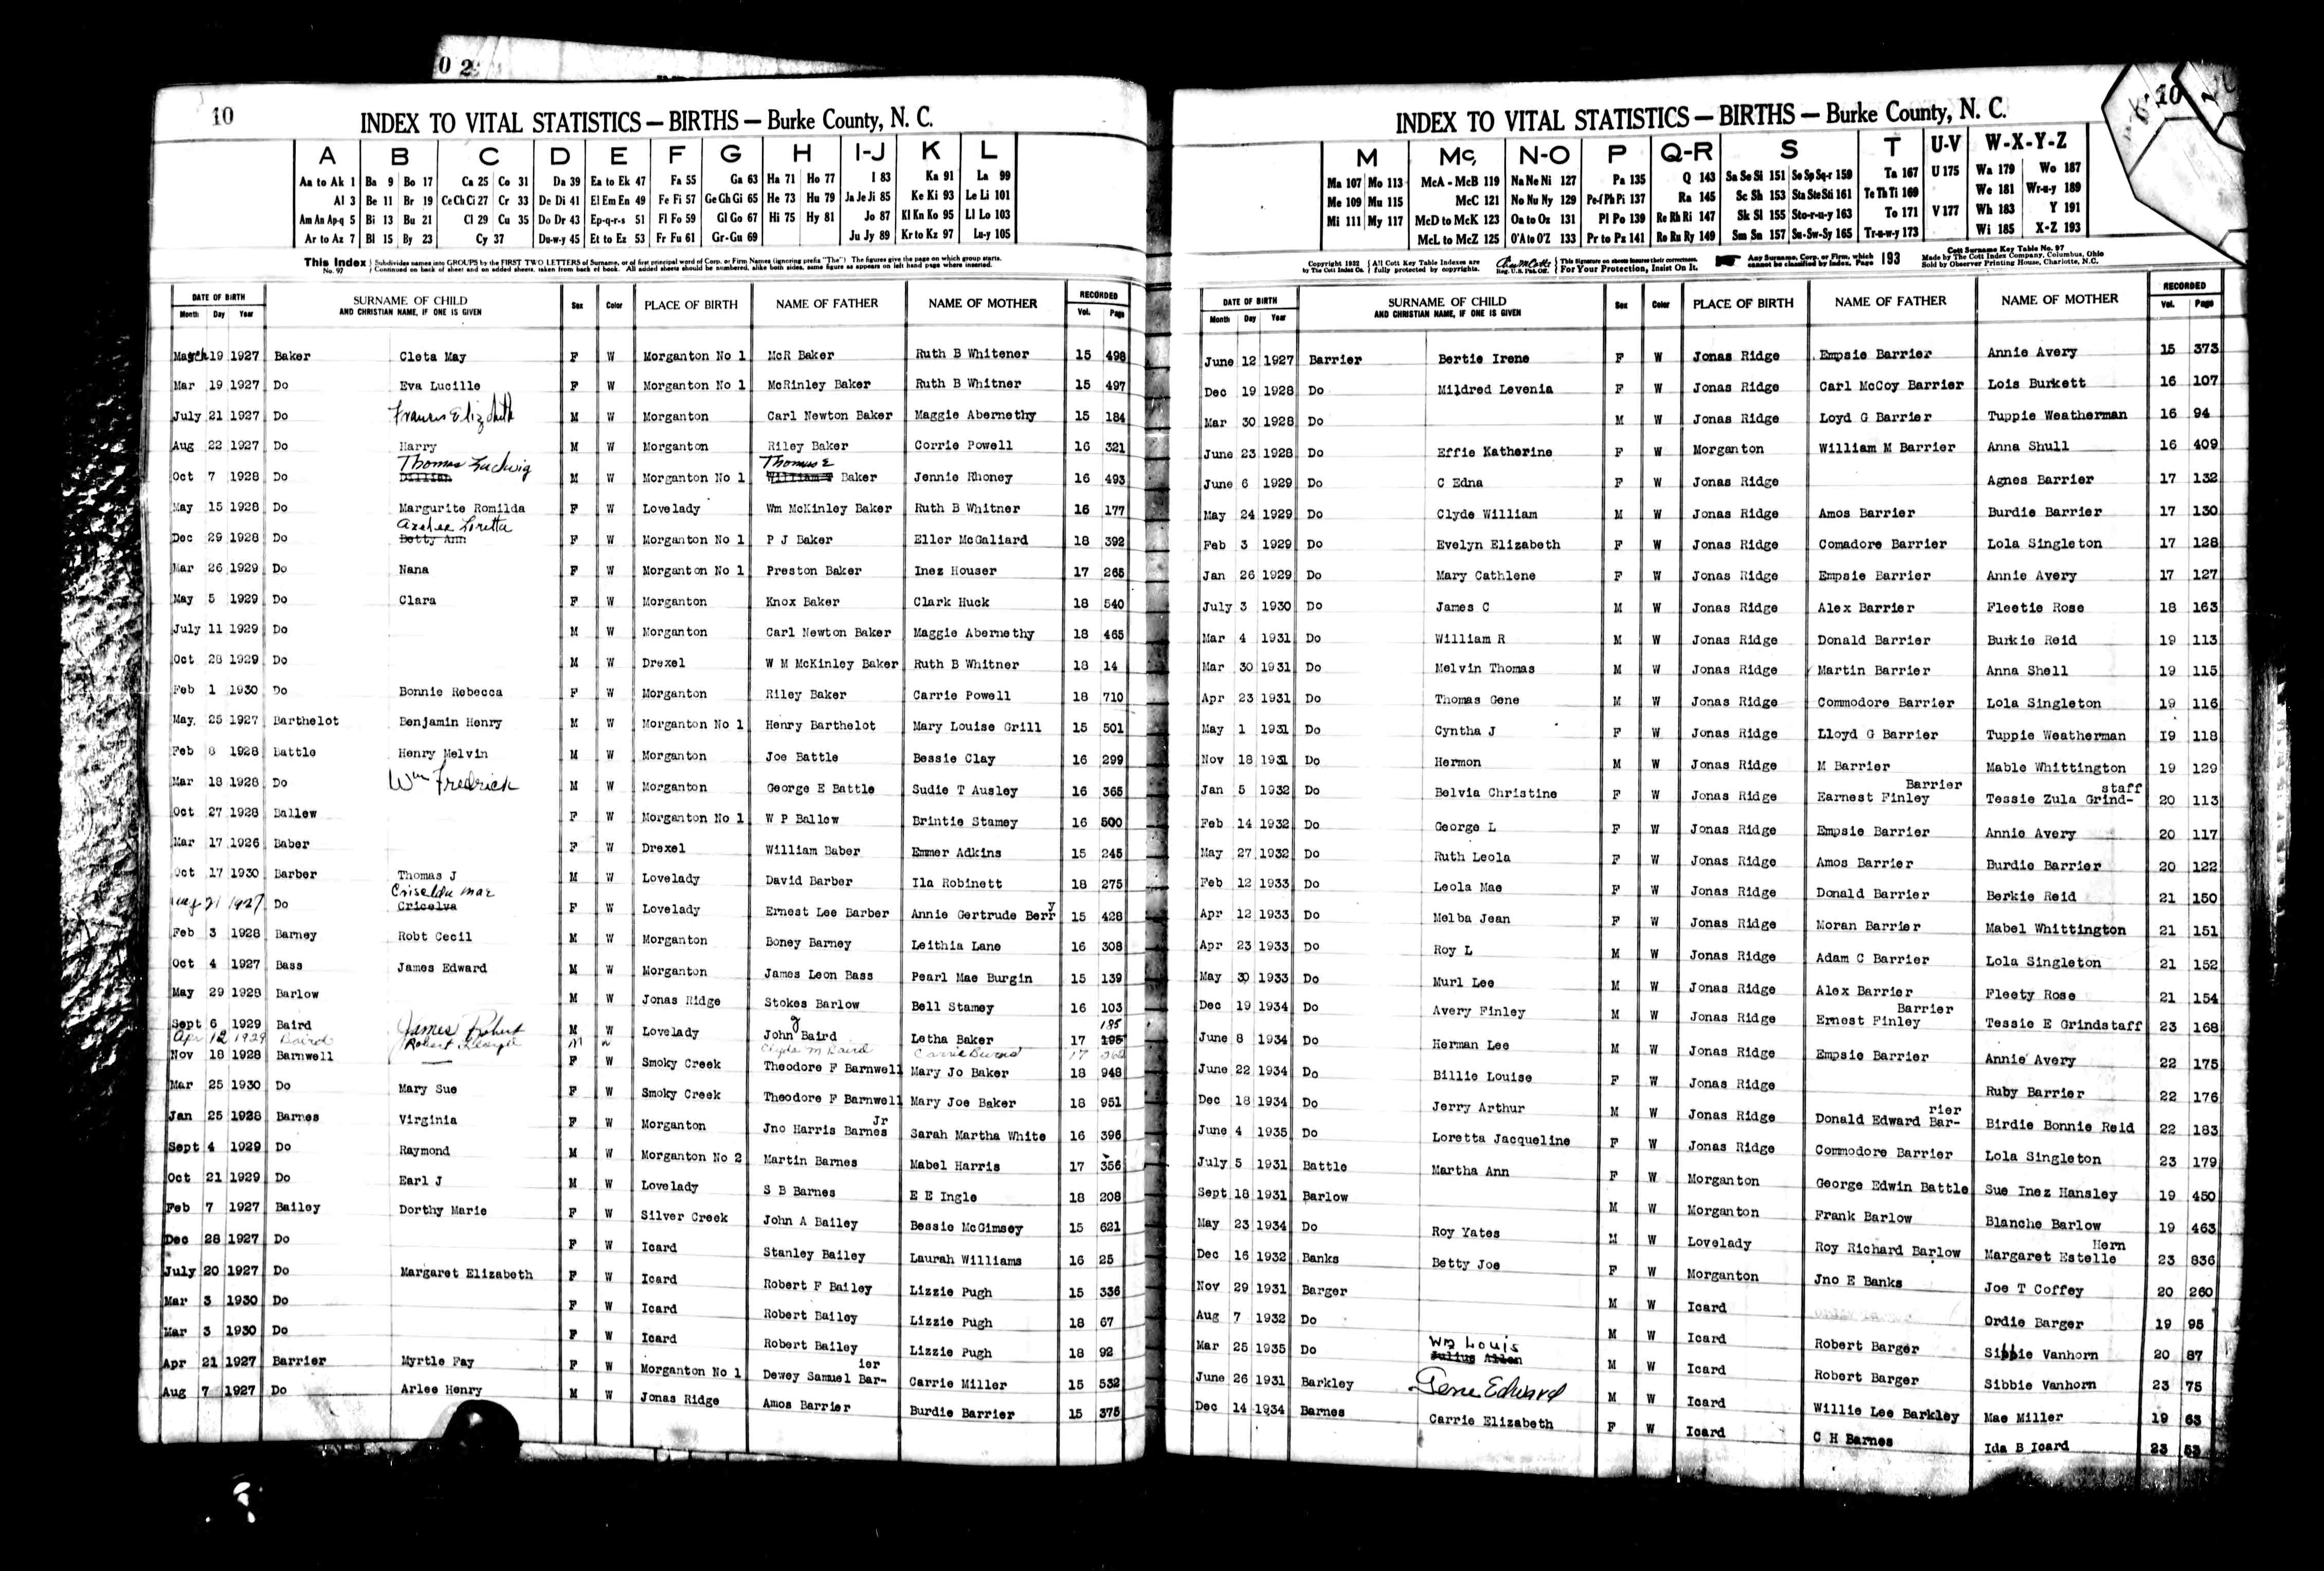 0 2
10
INDEX TO VITAL STATISTICS — BIRTHS — Burke County, N. C.
A B C D E F G H I-J K L
Aa to Ak 1 Ba 9 Bo 17 Ca 25 Co 31 Da 39 Ea to Ek 47 Fa 55 Ga 63 Ha 71 Ho 77 I 83 Ka 91 La 99
Al 3 Be 11 Br 19 Ce Ch Ci 27 Cr 33 De Di 41 El Em En 49 Fe Fi 57 Ge Gh Gi 65 He 73 Hu 79 Ja Je Ji 85 Ke Ki 93 Le Li 101
Am An Ap-q 5 Bi 13 Bu 21 Cl 29 Cu 35 Do Dr 43 Ep-q-r-s 51 Fl Fo 59 Gl Go 67 Hi 75 Hy 81 Jo 87 Kl Kn Ko 95 Ll Lo 103
Ar to Az 7 Bl 15 By 23 Cy 37 Du-w-y 45 Et to Ez 53 Fr Fu 61 Gr-Gu 69 Ju Jy 89 Kr to Kz 97 Lu-y 105
This Index No. 97 Subdivides names into GROUPS by the FIRST TWO LETTERS of Surname, or of first principal word of Corp. or Firm Names (ignoring prefix "The") The figures give the page on which group starts.
Continued on back of sheet and on added sheets, taken from back of book. All added sheets should be numbered, alike both sides, same figure as appears on left hand page where inserted.
DATE OF BIRTH Month Day Year SURNAME OF CHILD AND CHRISTIAN NAME, IF ONE IS GIVEN Sex Color PLACE OF BIRTH NAME OF FATHER NAME OF MOTHER RECORDED Vol. Page
March 19 1927 Baker Cleta May F W Morganton No 1 McR Baker Ruth B Whitener 15 498
Mar 19 1927 Do Eva Lucille F W Morganton No 1 McRinley Baker Ruth B Whitner 15 497
July 21 1927 Do Francis Elizabeth M W Morganton Carl Newton Baker Maggie Abernethy 15 184
Aug 22 1927 Do Harry M W Morganton Riley Baker Corrie Powell 16 321
Thomas Ludwig Thomas E
Oct 7 1928 Do Dillian M W Morganton No 1 William T Baker Jennie Rhoney 16 493
May 15 1928 Do Margurite Romilda F W Lovelady Wm McKinley Baker Ruth B Whitner 16 177
Azalea Loretta
Dec 29 1928 Do Betty Ann F W Morganton No 1 P J Baker Eller McGaliard 18 392
Mar 26 1929 Do Nana F W Morganton No 1 Preston Baker Inez Houser 17 265
May 5 1929 Do Clara F W Morganton Knox Baker Clark Huck 18 540
July 11 1929 Do M W Morganton Carl Newton Baker Maggie Abernethy 18 465
Oct 28 1929 Do M W Drexel W M McKinley Baker Ruth B Whitner 18 14
Feb 1 1930 Do Bonnie Rebecca F W Morganton Riley Baker Carrie Powell 18 710
May 25 1927 Barthelot Benjamin Henry M W Morganton No 1 Henry Barthelot Mary Louise Grill 15 501
Feb 8 1928 Battle Henry Melvin M W Morganton Joe Battle Bessie Clay 16 299
Mar 18 1928 Do Wm Fredrick M W Morganton George E Battle Sudie T Ausley 16 365
Oct 27 1928 Ballew F W Morganton No 1 W P Ballew Brintie Stamey 16 500
Mar 17 1926 Baber F W Drexel William Baber Emmer Adkins 15 245
Oct 17 1930 Barber Thomas J M W Lovelady David Barber Ila Robinett 18 275
Criselda Mae
21 1927 Do Cricelva F W Lovelady Ernest Lee Barber Annie Gertrude Berry 15 428
Feb 3 1928 Barney Robt Cecil M W Morganton Boney Barney Leithia Lane 16 308
Oct 4 1927 Bass James Edward M W Morganton James Leon Bass Pearl Mae Burgin 15 139
May 29 1928 Barlow M W Jonas Ridge Stokes Barlow Bell Stamey 16 103
Sept 6 1929 Baird James Robert M W Lovelady John J Baird Letha Baker 17 195 185
Apr 12 1929 Baird Robert George M W Clyde M Baird Carrie Burns 17
Nov 18 1928 Barnwell F W Smoky Creek Theodore F Barnwell Mary Jo Baker 18 948
Mar 25 1930 Do Mary Sue F W Smoky Creek Theodore F Barnwell Mary Joe Baker 18 951
Jan 25 1928 Barnes Virginia F W Morganton Jno Harris Barnes Jr Sarah Martha White 16 396
Sept 4 1929 Do Raymond M W Morganton No 2 Martin Barnes Mabel Harris 17 356
Oct 21 1929 Do Earl J M W Lovelady S B Barnes E E Ingle 18 208
Feb 7 1927 Bailey Dorthy Marie F W Silver Creek John A Bailey Bessie McGimsey 15 621
Dec 28 1927 Do F W Icard Stanley Bailey Laurah Williams 16 25
July 20 1927 Do Margaret Elizabeth F W Icard Robert F Bailey Lizzie Pugh 15 336
Mar 3 1930 Do F W Icard Robert Bailey Lizzie Pugh 18 67
Mar 3 1930 Do F W Icard Robert Bailey Lizzie Pugh 18 92
Apr 21 1927 Barrier Myrtle Fay F W Morganton No 1 Dewey Samuel Bar-ier Carrie Miller 15 532
Aug 7 1927 Do Arlee Henry M W Jonas Ridge Amos Barrier Burdie Barrier 15 375
10
INDEX TO VITAL STATISTICS — BIRTHS — Burke County, N. C.
M Mc, N-O P Q-R S T U-V W-X-Y-Z
Ma 107 Mo 113 McA - McB 119 Na Ne Ni 127 Pa 135 Q 143 Sa Se Si 151 So Sp Sq-r 159 Ta 167 U 175 Wa 179 Wo 187
Me 109 Mu 115 McC 121 No Nu Ny 129 Pe-f Ph Pi 137 Ra 145 Sc Sh 153 Sta Ste Sti 161 Te Th Ti 169 We 181 Wr-u-y 189
Mi 111 My 117 McD to McK 123 Oa to Oz 131 Pl Po 139 Re Rh Ri 147 Sk Sl 155 Sto-r-u-y 163 To 171 V 177 Wh 183 Y 191
McL to McZ 125 O'A to O'Z 133 Pr to Pz 141 Ro Ru Ry 149 Sm Sn 157 Su-Sw-Sy 165 Tr-u-w-y 173 Wi 185 X-Z 193
Copyright 1932 by The Cott Index Co. All Cott Key Table Indexes are fully protected by copyrights. Reg. U.S. Pat. Off. This Signature on sheets insures their correctness. For Your Protection, Insist On It. Any Surname, Corp. or Firm, which cannot be classified by Index, Page 193 Cott Surname Key Table No. 97 Made by The Cott Index Company, Columbus, Ohio Sold by Observer Printing House, Charlotte, N.C.
DATE OF BIRTH Month Day Year SURNAME OF CHILD AND CHRISTIAN NAME, IF ONE IS GIVEN Sex Color PLACE OF BIRTH NAME OF FATHER NAME OF MOTHER RECORDED Vol. Page
June 12 1927 Barrier Bertie Irene F W Jonas Ridge Empsie Barrier Annie Avery 15 373
Dec 19 1928 Do Mildred Levenia F W Jonas Ridge Carl McCoy Barrier Lois Burkett 16 107
Mar 30 1928 Do M W Jonas Ridge Loyd G Barrier Tuppie Weatherman 16 94
June 23 1928 Do Effie Katherine F W Morganton William M Barrier Anna Shull 16 409
June 6 1929 Do C Edna F W Jonas Ridge Agnes Barrier 17 132
May 24 1929 Do Clyde William M W Jonas Ridge Amos Barrier Burdie Barrier 17 130
Feb 3 1929 Do Evelyn Elizabeth F W Jonas Ridge Comadore Barrier Lola Singleton 17 128
Jan 26 1929 Do Mary Cathlene F W Jonas Ridge Empsie Barrier Annie Avery 17 127
July 3 1930 Do James C M W Jonas Ridge Alex Barrier Fleetie Rose 18 163
Mar 4 1931 Do William R M W Jonas Ridge Donald Barrier Burkie Reid 19 113
Mar 30 1931 Do Melvin Thomas M W Jonas Ridge Martin Barrier Anna Shell 19 115
Apr 23 1931 Do Thomas Gene M W Jonas Ridge Commodore Barrier Lola Singleton 19 116
May 1 1931 Do Cyntha J F W Jonas Ridge Lloyd G Barrier Tuppie Weatherman 19 118
Nov 18 1931 Do Hermon M W Jonas Ridge M Barrier Mable Whittington 19 129
Barrier staff
Jan 5 1932 Do Belvia Christine F W Jonas Ridge Earnest Finley Tessie Zula Grind- 20 113
Feb 14 1932 Do George L F W Jonas Ridge Empsie Barrier Annie Avery 20 117
May 27 1932 Do Ruth Leola F W Jonas Ridge Amos Barrier Burdie Barrier 20 122
Feb 12 1933 Do Leola Mae F W Jonas Ridge Donald Barrier Berkie Reid 21 150
Apr 12 1933 Do Melba Jean F W Jonas Ridge Moran Barrier Mabel Whittington 21 151
Apr 23 1933 Do Roy L M W Jonas Ridge Adam C Barrier Lola Singleton 21 152
May 30 1933 Do Murl Lee M W Jonas Ridge Alex Barrier Fleety Rose 21 154
Barrier
Dec 19 1934 Do Avery Finley M W Jonas Ridge Ernest Finley Tessie E Grindstaff 23 168
June 8 1934 Do Herman Lee M W Jonas Ridge Empsie Barrier Annie Avery 22 175
June 22 1934 Do Billie Louise F W Jonas Ridge Ruby Barrier 22 176
rier
Dec 18 1934 Do Jerry Arthur M W Jonas Ridge Donald Edward Bar- Birdie Bonnie Reid 22 183
June 4 1935 Do Loretta Jacqueline F W Jonas Ridge Commodore Barrier Lola Singleton 23 179
July 5 1931 Battle Martha Ann F W Morganton George Edwin Battle Sue Inez Hansley 19 450
Sept 18 1931 Barlow M W Morganton Frank Barlow Blanche Barlow 19 463
Hern
May 23 1934 Do Roy Yates M W Lovelady Roy Richard Barlow Margaret Estelle 23 836
Dec 16 1932 Banks Betty Joe F W Morganton Jno E Banks Joe T Coffey 20 260
Nov 29 1931 Barger M W Icard Ordie Barger 19 95
Aug 7 1932 Do M W Icard Robert Barger Sibbie Vanhorn 20 87
Wm Louis
Mar 25 1935 Do Julius Allen M W Icard Robert Barger Sibbie Vanhorn 23 75
June 26 1931 Barkley Gene Edward M W Icard Willie Lee Barkley Mae Miller 19 63
Dec 14 1934 Barnes Carrie Elizabeth F W Icard C H Barnes Ida B Icard 23 53